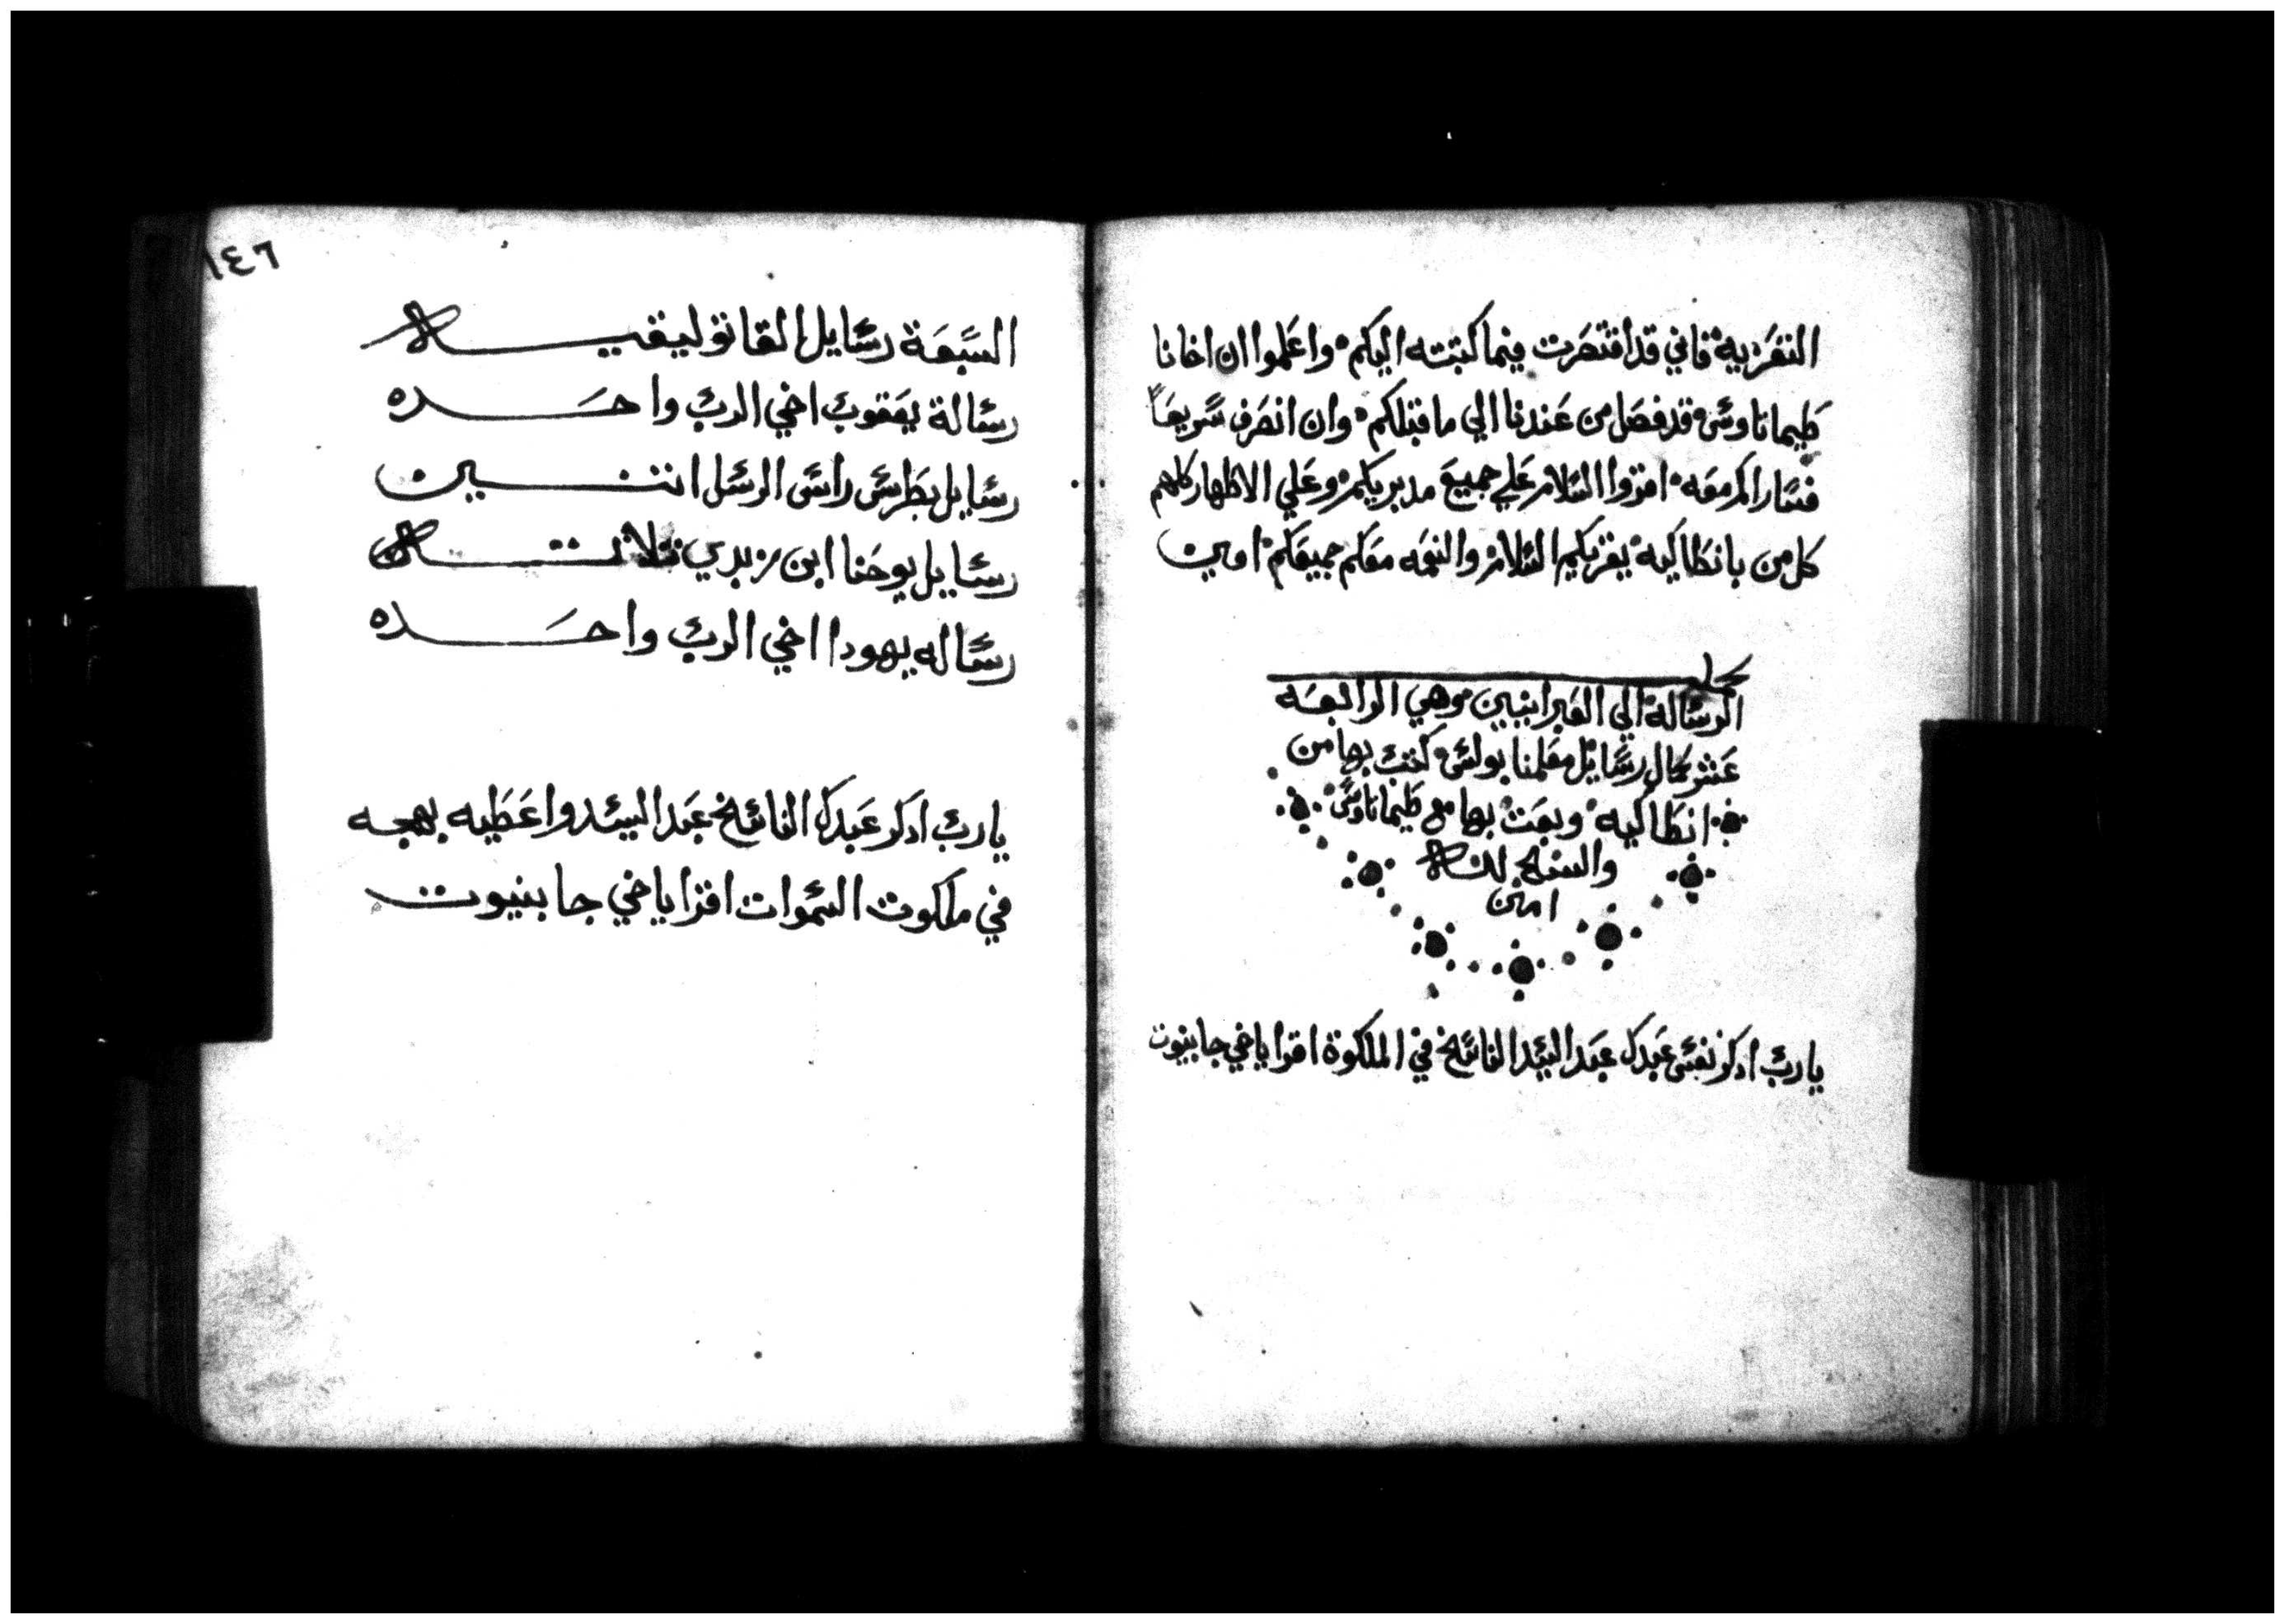 التعزيه فاني قد اقتصرت فيما كتبته اليكم واعلموا ان اخانا
طيماتاوس قد فصل من عندنا الي ما قبلكم وان انصرف سريعا
فسارا كم معه اقروا السلام علي جميع مدبريكم وعلي الاطهار كلهم
كل من بانطاكيه يقريكم السلام والنعمه معكم جميعكم امين
الرساله الي العبرانيين وهي الرابعه
عشر رسايل معلمنا بولس كتب بها من
انطاكيه وبعت بها مع طيماتاوس
والسبح لله
امين
يارب ادكر نفس عبدك عبد السيد الناسخ في الملكوة اقرا ياخي جا بنيوت
١٤٦
السبعة رسايل القاتوليقيه
رسالة يعقوب اخي الرب واحده
رسايل بطرس راس الرسل اتنين
رسايل يوحنا ابن زبدي تلاته
رساله يهودا اخي الرب واحده
يارب ادكر عبدك الناسخ عبد السيد واعطيه بهجه
في ملكوت السموات اقرا ياخي جا بنيوت